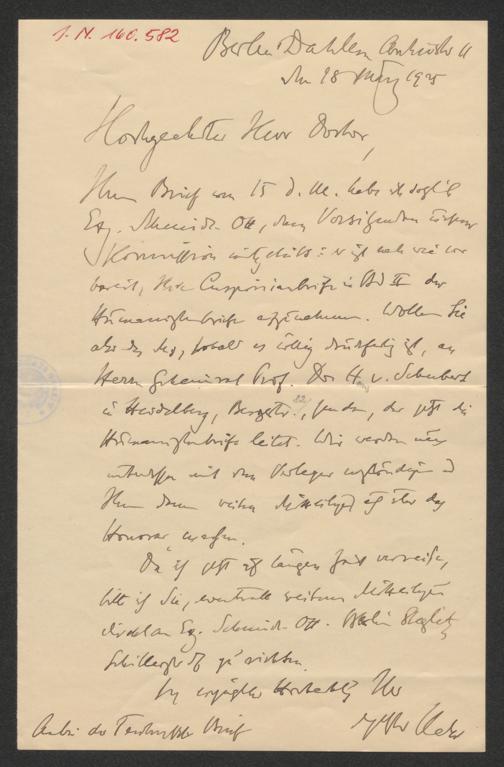 I. N. 160.582
Berlin Dahlem
den 28 März 1925
Hochgeehrter Herr Doktor,
Ihren Brief vom 15 d. M. habe ich sogleich
Exz. Schmidt-Ott, dem Vorsitzenden unserer
Kommission mitgeteilt: er ist nach wie vor
bereit, Ihre Cuspinianbriefe in Bd II der
Humanistenbriefe aufzunehmen. Wollen Sie
also das Msc, sobald es völlig druckfertig ist, an
Herrn Geheimrat Prof. Dr. H. v. Schubert
in Heidelberg, Bergstr. 82, senden, der jetzt die
Humanistenbriefe leitet. Wir werden uns
mit dem Verleger verständigen
Ihnen dann weitere Mitteilung auch über das
Honorar machen.
Da ich jetzt auf längere Zeit verreise,
bitte ich Sie, eventuelle weitere Mitteilungen
direkt an Exz. Schmidt-Ott. Berlin Steglitz,
Schillerstr. zu richten.
Ihr